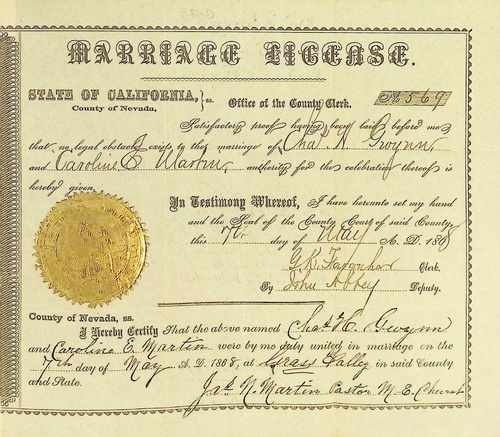 MARRIAGE LICENSE.
STATE OF CALIFORNIA, } ss. Office of the County Clerk. No 569
County of Nevada,
Satisfactory proof having been laid before me
that no legal obstacle exists to the marriage of Chas H. Gwynn,
and Caroline E Martin, authority for the celebration thereof is
hereby given,
In Testimony Whereof, I have hereunto set my hand
and the Seal of the County Court of said County,
this 7th day of May A. D. 1868
Clerk.
By John Abbey Deputy.
County of Nevada, ss.
I Hereby Certify That the above named Chas. H. Gwynn
and Caroline E. Martin were by me duly united in marriage on the
7th day of May A. D. 1868, at Grass Valley in said County
and State.
N. Martin Pastor M. E. Church